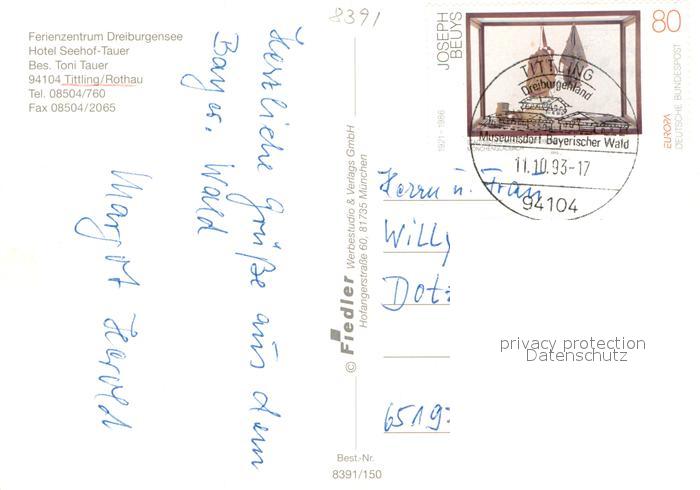 Ferienzentrum Dreiburgensee
Hotel Seehof-Tauer
Bes. Toni Tauer
94104 Tittling/Rothau
Tel. 08504/760
Fax 08504/2065
8391
Herzliche Grüße aus dem
Bayer. Wald
Margot Herold
© Fiedler Werbestudio & Verlags GmbH
Hofangerstraße 60, 81735 München
Best.-Nr.
8391/150
JOSEPH
BEUYS
1921 - 1986
80
EUROPA
DEUTSCHE BUNDESPOST
TITTLING
Dreiburgenland
Museumsdorf Bayerischer Wald
11.10.93-17
94104
Herrn u. Frau
Willy
Dot
6519
privacy protection
Datenschutz